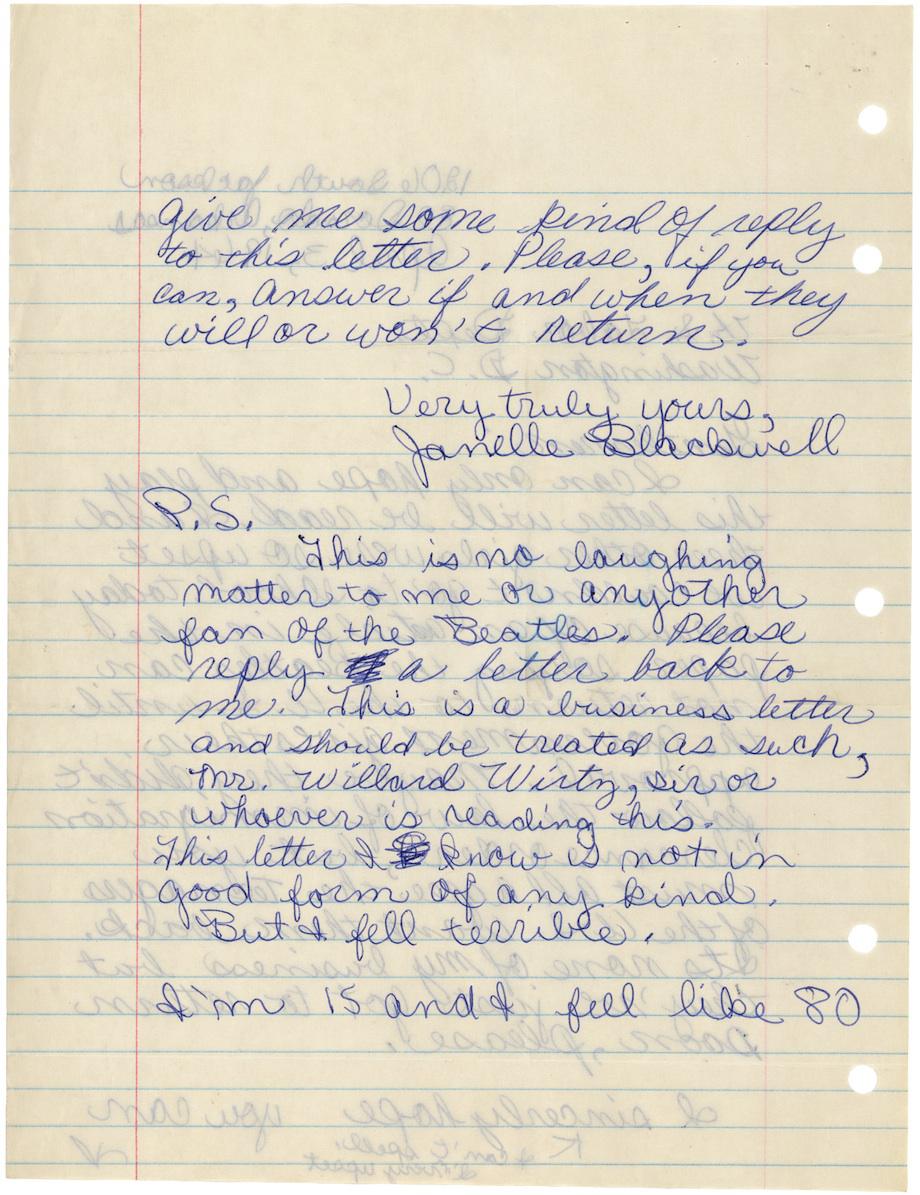 Give me some kind of reply
to this letter. Please, if you
can, answer if and when they
will or won't return.
Very truly yours,
Janelle Blackwell
P.S.
This is no laughing
matter to me or anyother
fan of the Beatles. Please
reply a letter back to
me. This is a business letter
and should be treated as such,
Mr. Willard Wirtz, sir or
whoever is reading this.
This letter I know is not in
good form of any kind.
But I fell terrible.
I'm 15 and I fell like 80